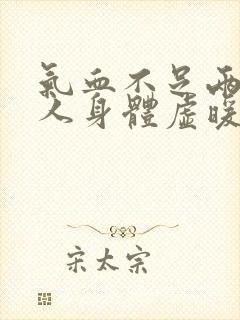 氣血不足
人身體虛暖
宋太宗